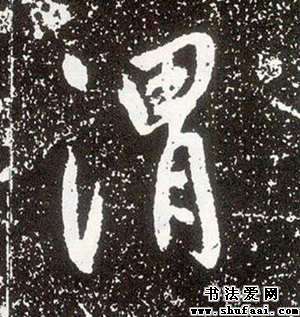 渭
书法爱网
www.shufaai.com